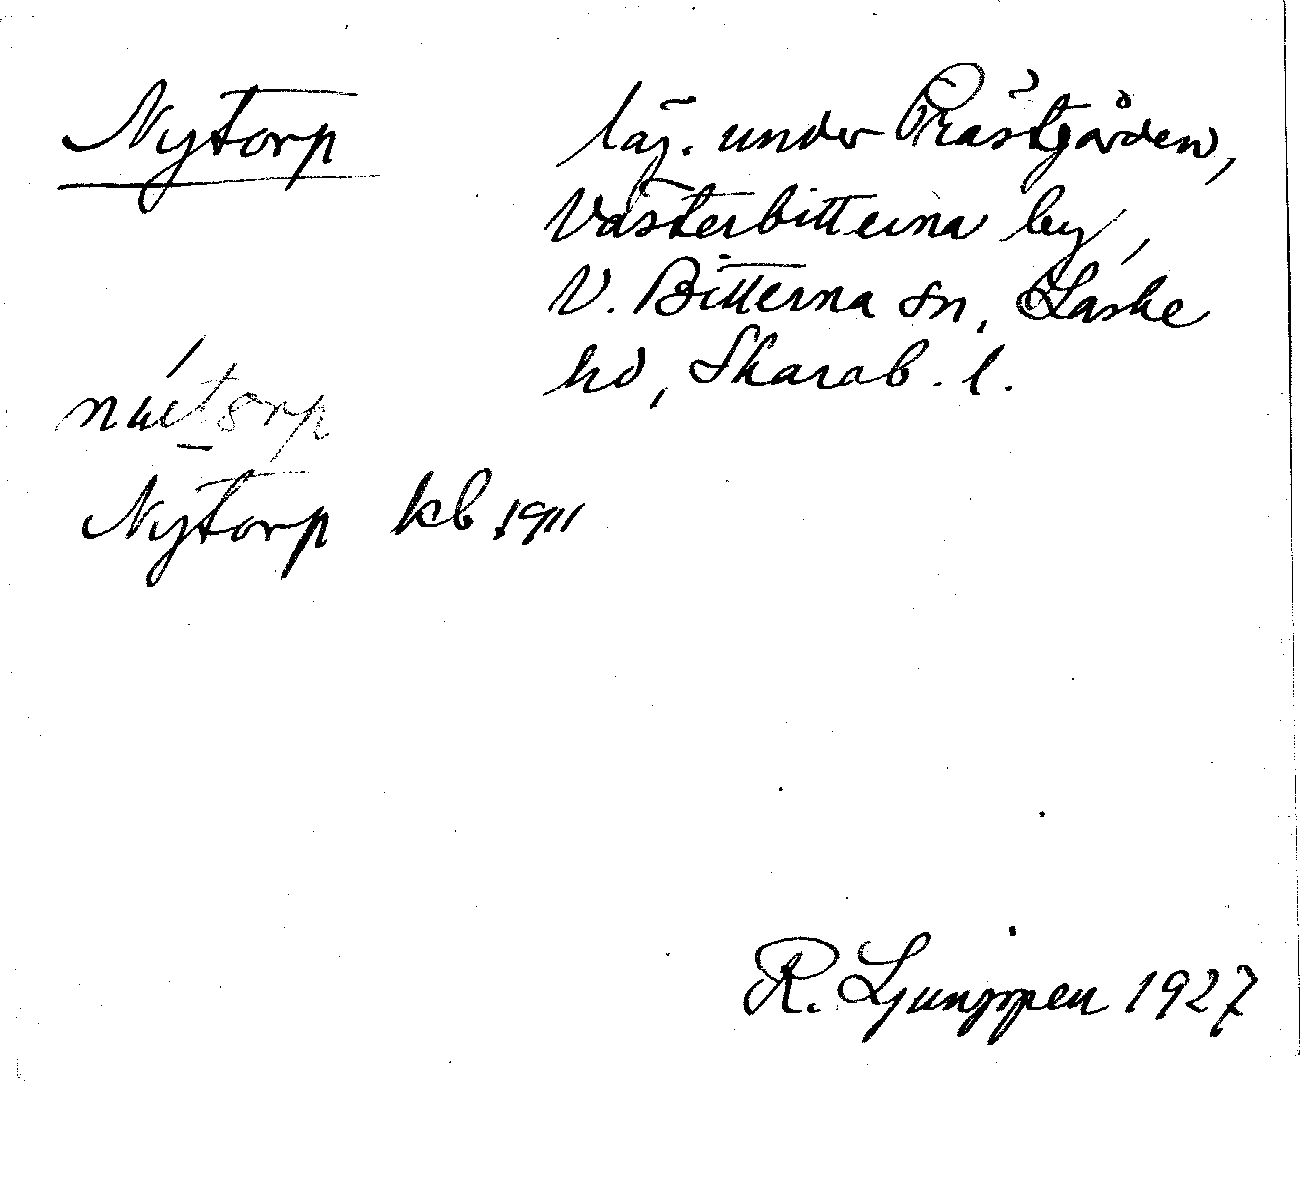 Nytorp
läg. under Prästgården,
Västerbitterna by,
V. Bitterna sn, Laske
hd, Skarab. l.
Nytorp kb 1911
R. Ljunggren 1927